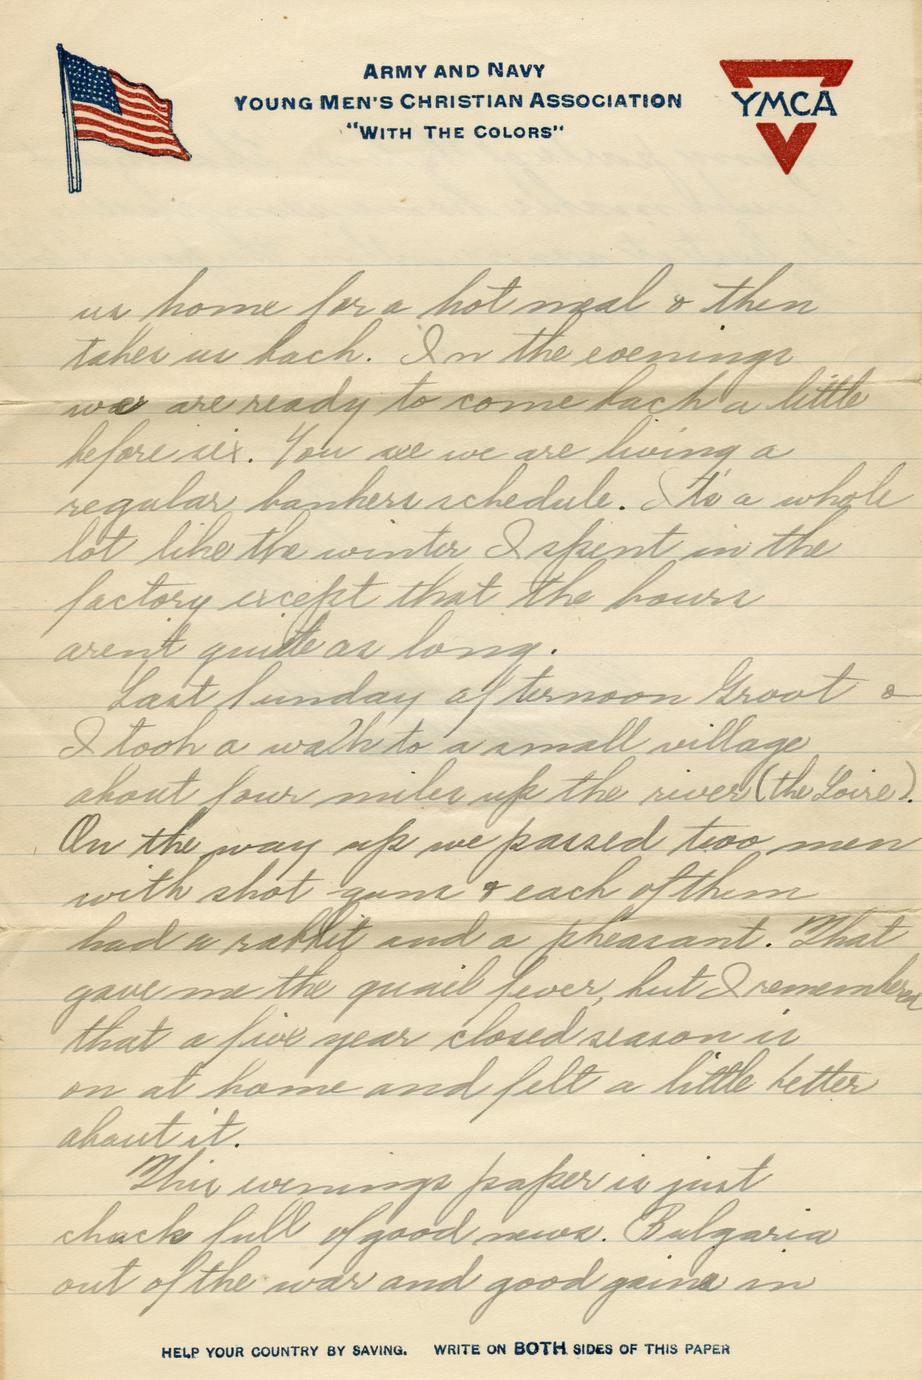 ARMY AND NAVY
YOUNG MEN'S CHRISTIAN ASSOCIATION
"WITH THE COLORS"
YMCA
us home for a hot meal & then
takes us back. In the evenings
we are ready to come back a little
before six. You see we are living a
regular bankers schedule. It's a whole
lot like the winter I spent in the
factory except that the hours
aren't quite as long.
Last Sunday afternoon Groot &
I took a walk to a small village
about four miles up the river (the Loire).
On the way up we passed two men
with shot guns & each of them
had a rabbit and a pheasant. That
gave me the quail fever, but I remembered
that a five year closed season is
on at home and felt a little better
about it.
This evenings paper is just
chuck full of good news. Bulgaria
out of the war and good gains in
HELP YOUR COUNTRY BY SAVING. WRITE ON BOTH SIDES OF THIS PAPER